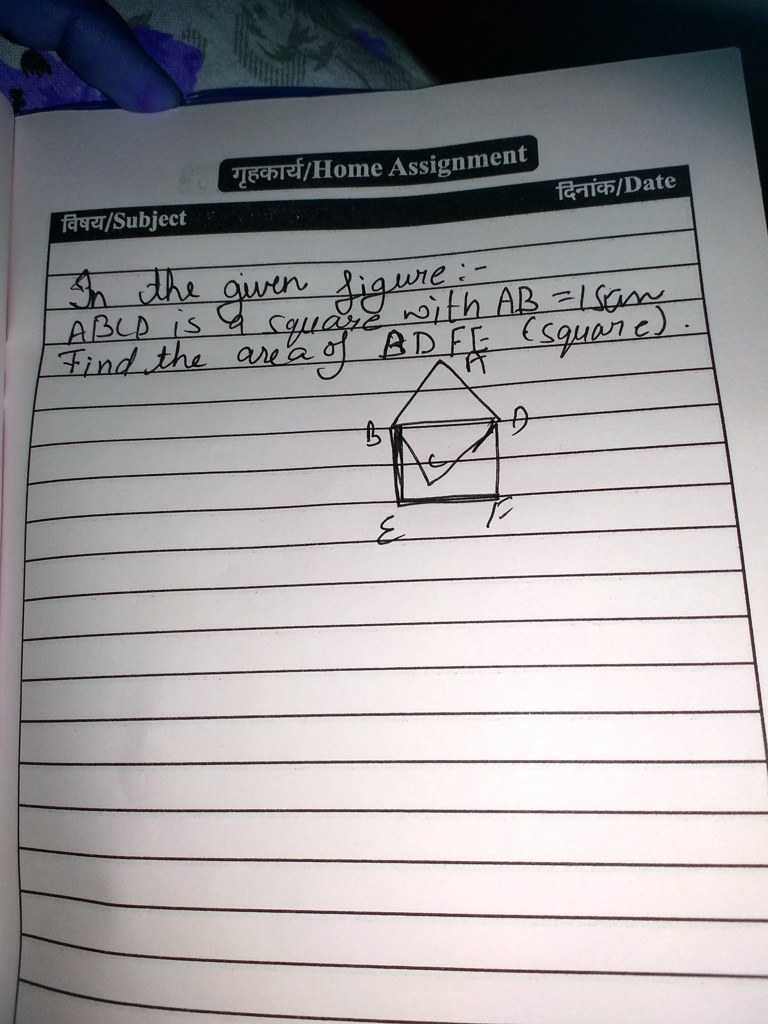 गृहकार्य/Home Assignment
विषय/Subject
दिनांक/Date
In the given figure :-
ABCD is a square with AB = 15cm
Find the area of BDFE (square).
A
B
D
C
E
F